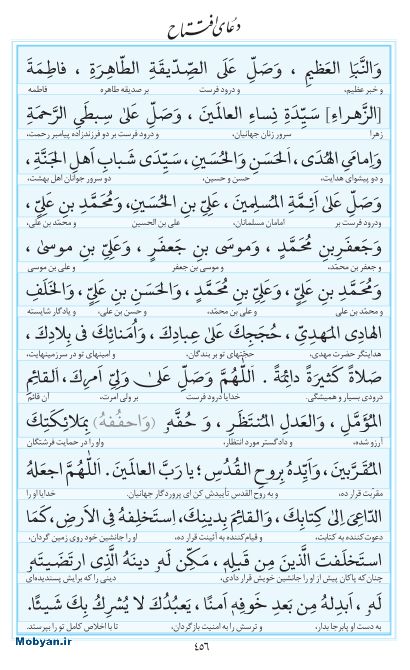 دعای افتتاح
وَالنَّبَاِ العَظیمِ ، وَصَلِّ عَلَی الصِّدّیقَةِ الطّاهِرَةِ ، فاطِمَةَ
و خبر عظیم، و درود فرست بر صدیقه طاهره فاطمه
[الزَّهراءِ] سَیِّدَةِ نِساءِ العالَمینَ ، وَصَلِّ عَلیٰ سِبطَیِ الرَّحمَةِ
زهرا سرور زنان جهانیان، و درود فرست بر دو فرزندزاده پیامبر رحمت،
وَاِمامَیِ الهُدیٰ، اَلحَسَنِ وَالحُسَینِ، سَیِّدَی شَبابِ اَهلِ الجَنَّةِ ،
و دو پیشوای هدایت، حسن و حسین، دو سرور جوانان اهل بهشت،
وَصَلِّ عَلیٰ اَئِمَّةِ المُسلِمینَ ، عَلِیِّ بنِ الحُسَینِ، وَمُحَمَّدِ بنِ عَلِیٍّ ،
ودرود فرست بر امامان مسلمانان، علی بن الحسین و محمّد بن علی،
وَجَعفَرِبنِ مُحَمَّدٍ ، وَموسَی بنِ جَعفَرٍ ، وَعَلِیِّ بنِ موسیٰ ،
و جعفر بن محمّد، و موسی بن جعفر و علی بن موسی
وَمُحَمَّدِ بنِ عَلِیٍّ ، وَعَلِیِّ بنِ مُحَمَّدٍ ، وَالحَسَنِ بنِ عَلِیٍّ ، وَالخَلَفِ
و محمّد بن علی و علی بن محمّد، و حسن بن علی، و یادگار شایسته
الهادِی المَهدِیِّ ، حُجَجِکَ عَلیٰ عِبادِکَ ، وَاُمَنائِکَ فی بِلادِکَ ،
هدایتگر حضرت مهدی، حجّتهای تو بر بندگان، و امینهای تو در سرزمینهایت،
صَلاةً کَثیرَةً دائِمَةً . اَللّٰهُمَّ وَصَلِّ عَلیٰ وَلِیِّ اَمرِکَ، القائِمِ
درودی بسیار و همیشگی. خدایا درود فرست بر ولی امرت، آن قائم
المُؤَمَّلِ ، وَالعَدلِ المُنتَظَرِ ، وَ حُفَّهُ (وَاحفُفهُ) بِمَلائِکَتِکَ
آرزو شده، و دادگستر مورد انتظار، و او را در حمایت فرشتگان
المُقَرَّبینَ، وَاَیِّدهُ بِروحِ القُدُسِ ؛ یا رَبَّ العالَمینَ. اَللّٰهُمَّ اجعَلهُ
مقربت قرار ده، و به روح القدس تأییدش کن ای پروردگار جهانیان. خدایا او را
الدّاعِیَ اِلیٰ کِتابِکَ، وَالقائِمَ بِدینِکَ، اِستَخلِفهُ فِی الاَرضِ، کَمَا
دعوت کننده به کتابت، و قیام‌کننده به آئینت قرار ده، او را جانشین خود روی زمین گردان،
استَخلَفتَ الَّذینَ مِن قَبلِهِ، مَکِّن لَهُ دینَهُ الَّذِی ارتَضَیتَهُ
چنان‌که پاکان پیش از او را جانشین خویش قرار دادی، دینی را که برایش پسندیده‌ای
لَهُ، اَبدِلهُ مِن بَعدِ خَوفِهِ اَمنًا ، یَعبُدُکَ لا یُشرِکُ بِکَ شَیئًا.
به دست او پابرجا بدار، و ترسش را به امنیت بازگردان، تا با اخلاص کامل تو را بپرستد.
Mobyan.ir ٤٥٦